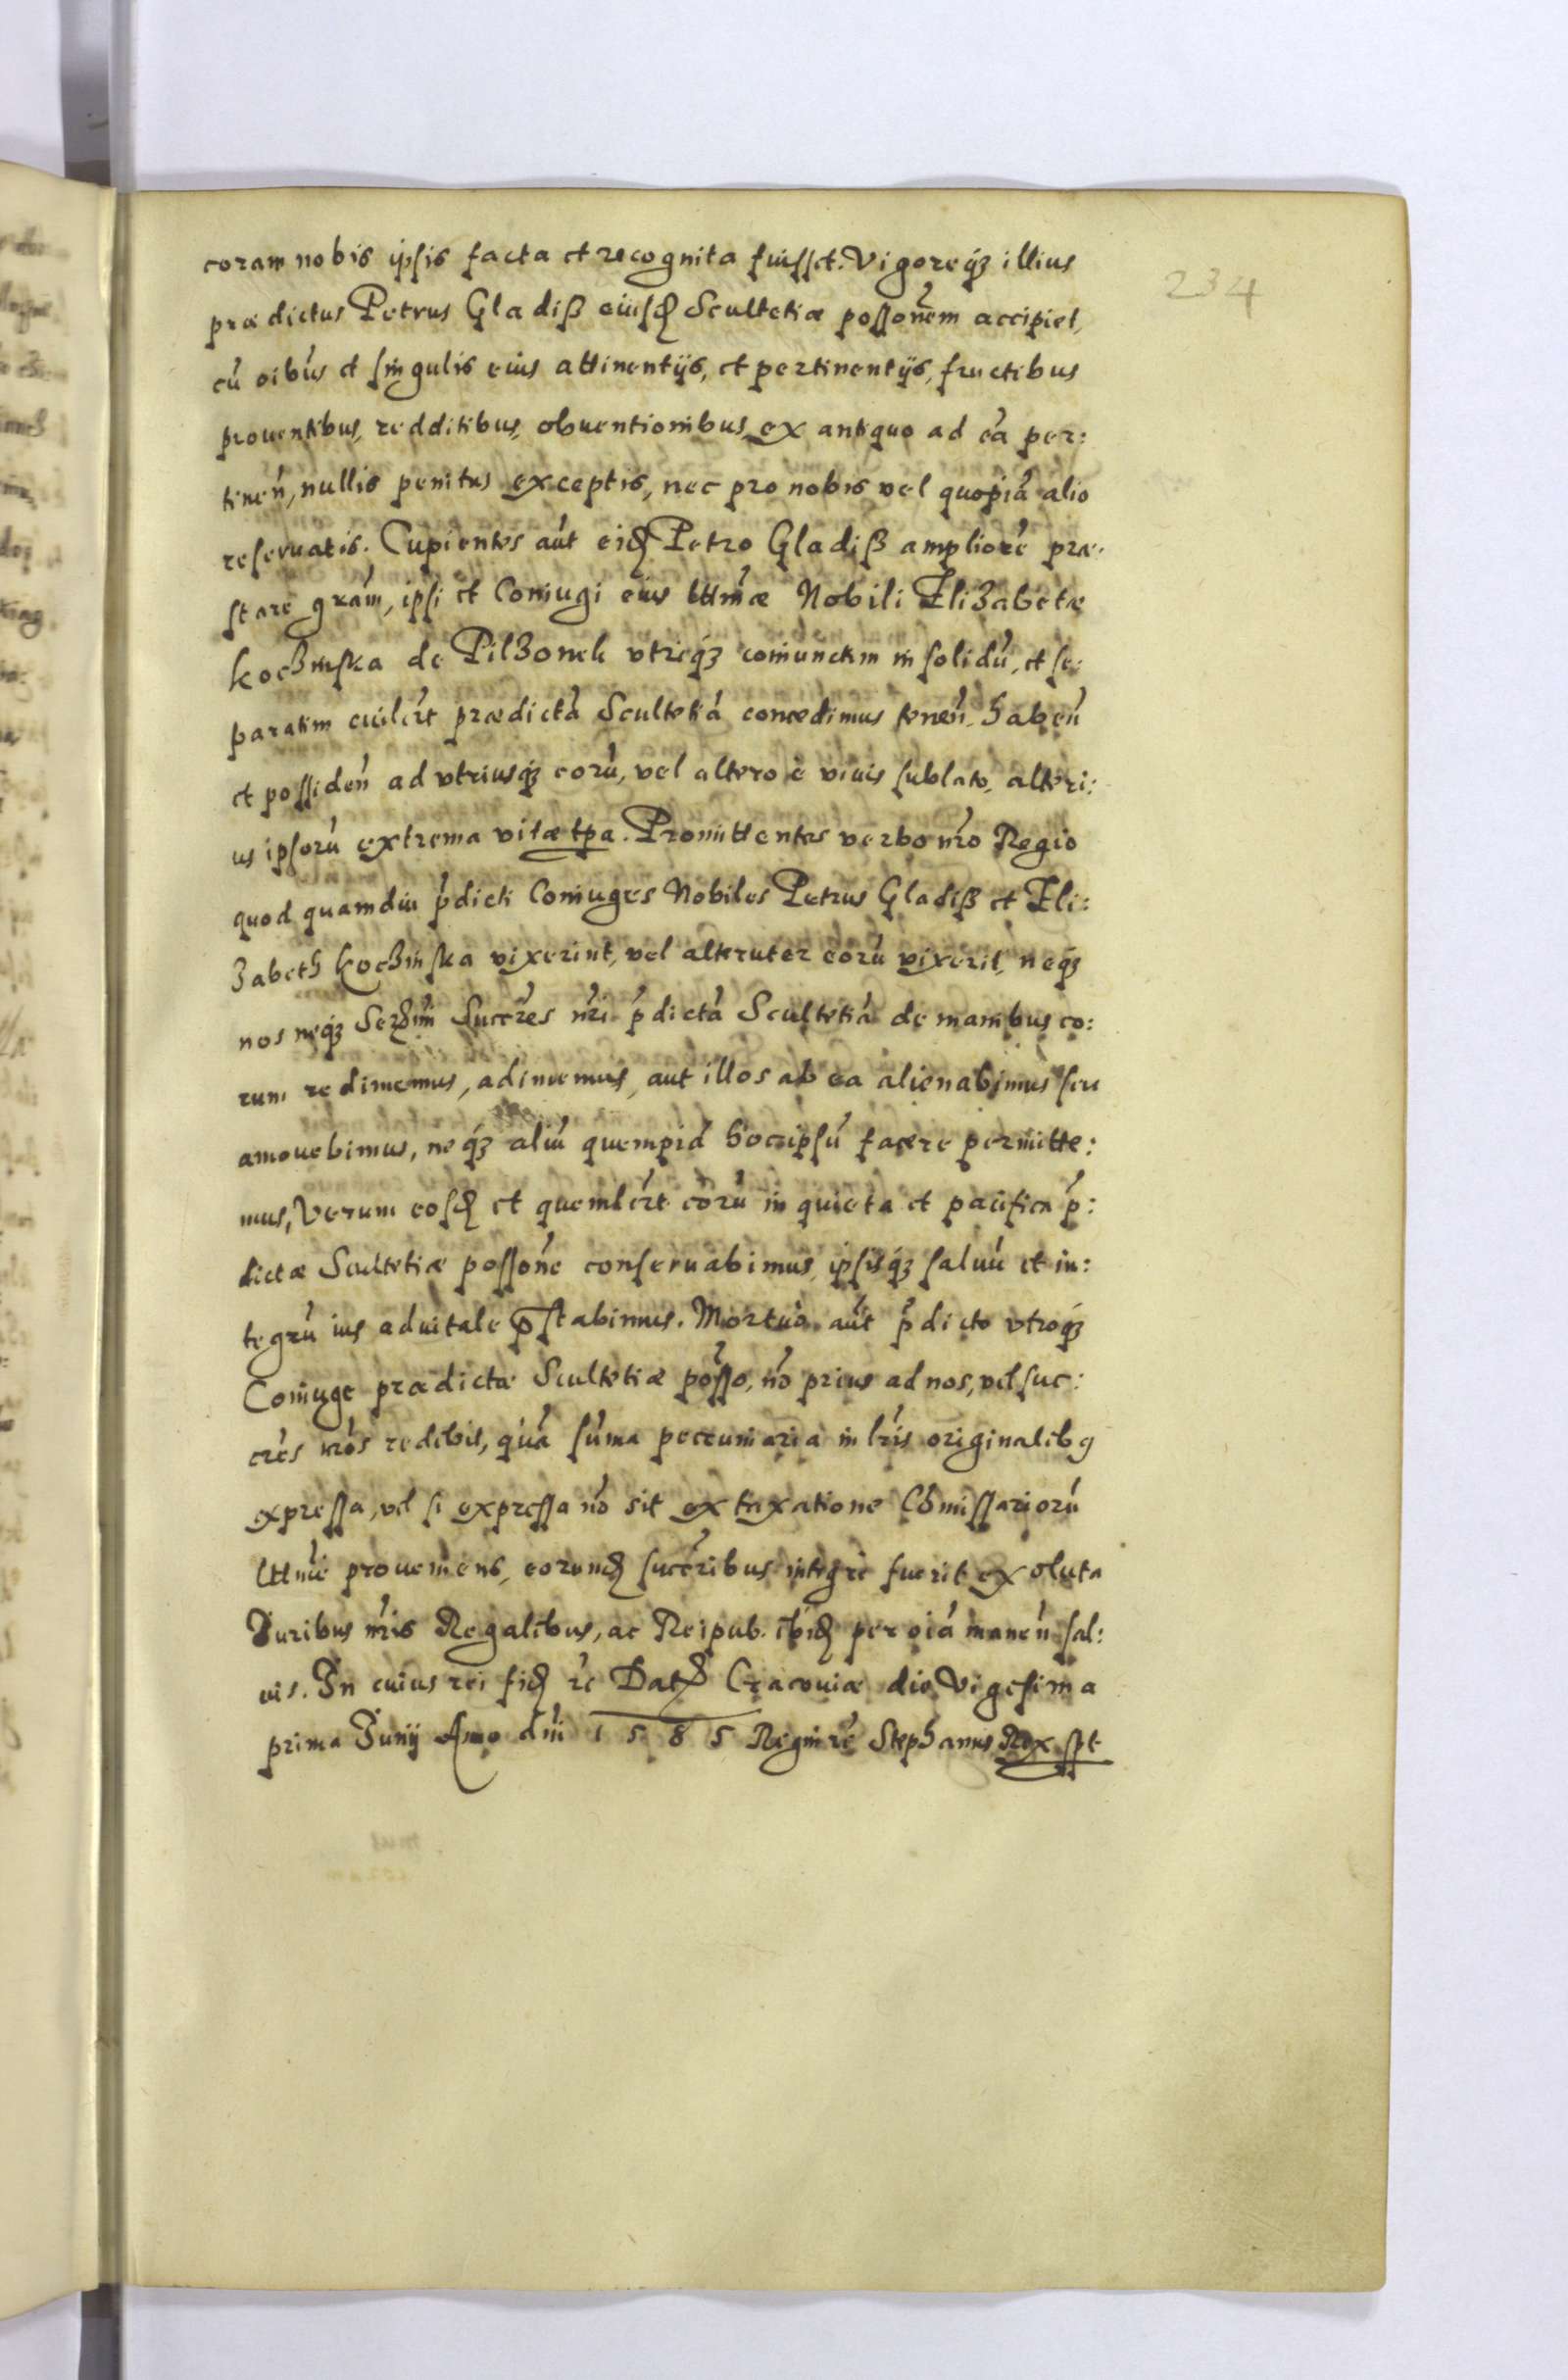 234
coram nobis ipsis facta et recognita fuisset. Vigoreq́ʒ illius
prædictus Petrus Gladiß eiusđ Scultetiæ possoñem accipiet,
cú oibús et singulis eius attinentijs, et pertinentijs, fructibus
prouentibus, redditibus, obuentionibus ex antiquo ad eá per:
tineń, nullis penitus exceptis, nec pro nobis vel quopiá alio
reseruatis. Cupientes aút eiđ Petro Gladiß amplioré præ-
stare grám, ipsi et Coniugi eius lttmæ Nobili Elizabetæ
Koczinska de Pilzonek vtriq́ʒ coniunctim in solidú, et se:
paratim cuilért prædictá Scultetiá concedimus teneń. habeń
et possideń ad vtriusq́ʒ eorú, vel altero è viuis sublato, alteri:
us ipsorú extrema vitæ tpa. Promittentes verbo nŕo Regio
quod quamdiu ṕdicti Coniuges Nobiles Petrus Gladiß et Eli:
zabeth Koczinska vixerint, vel alteruter eorú vixerit, neq́ʒ
nos neq́ʒ Serḿi Succŕes nŕi ṕdictá Scultetiá de manibus eo:
rum redimemus, adimemus, aut illos ab ea alienabimus seu
amouebimus, neq́ʒ aliú quempiá hocipsú facere permitte:
mus, Verum eosđ et quemlért eorú in quieta et pacifica ṕ:
dictæ Scultetiæ possońe conseruabimus, ipsisq́ʒ saluú et in:
tegrú ius aduitale p̃stabimus. Mortuo aút ṕdicto vtroq́ʒ
Coniuge prædictæ Scultetiæ posso, nó prius ad nos, vel suc:
crés nŕos redibit, quá súma pecuniaria in lŕis originalibq
expressa, vel si expressa nó sit ex taxatione Cómissariorú
lttmé proueniens, eorumđ succŕibus integrè fuerit exoluta
Iuribus nŕis Regalibus, ac Reipub. ibiđ per oiá maneń sal:
uis. In cuius rei fiđ rć Dat̃ Cracouiæ die Vigesima
prima Iunij Anno dńi 1585 Regni ré Stephanus Rex spt